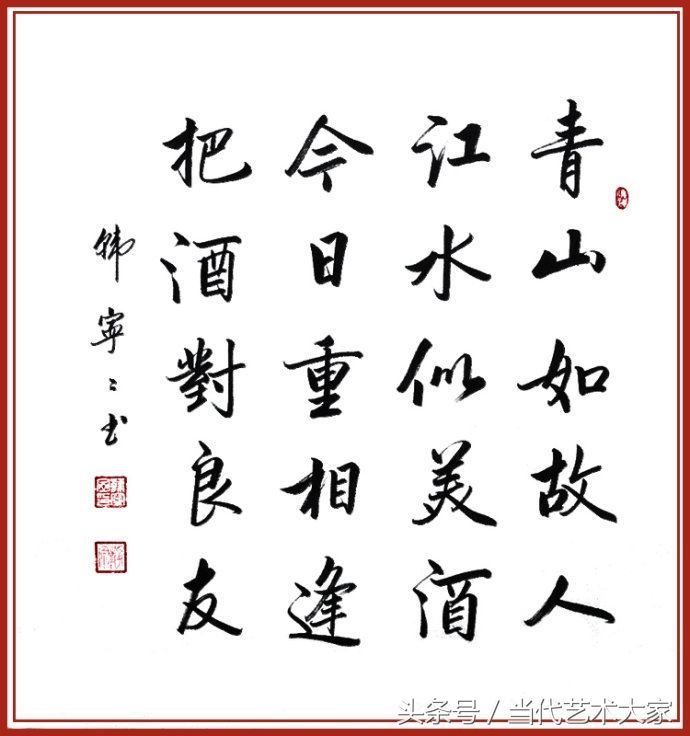 青山如故人
江水似美酒
今日重相逢
把酒對良友
韩寧〻书
头条号 / 当代艺术大家